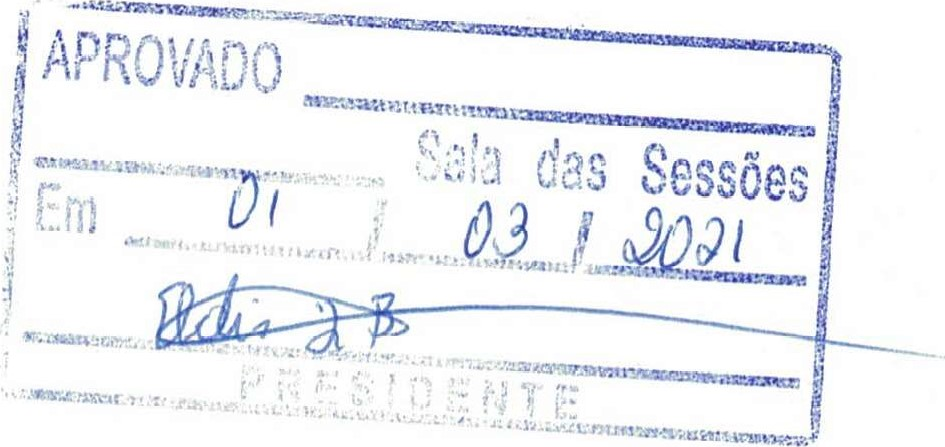 APROVADO
Sala das Sessões
Em 01 / 03 / 2021
PRESIDENTE